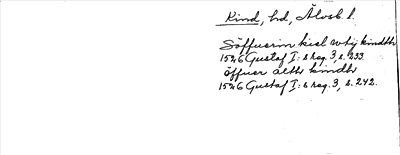 Kind, hd, Älvsb. l.
Söffuerin kiel wtij kindth
1546 Gustaf I:s reg. 3, s. 233.
öffuer alth kindh
1546 Gustaf I:s reg. 3, s. 242.